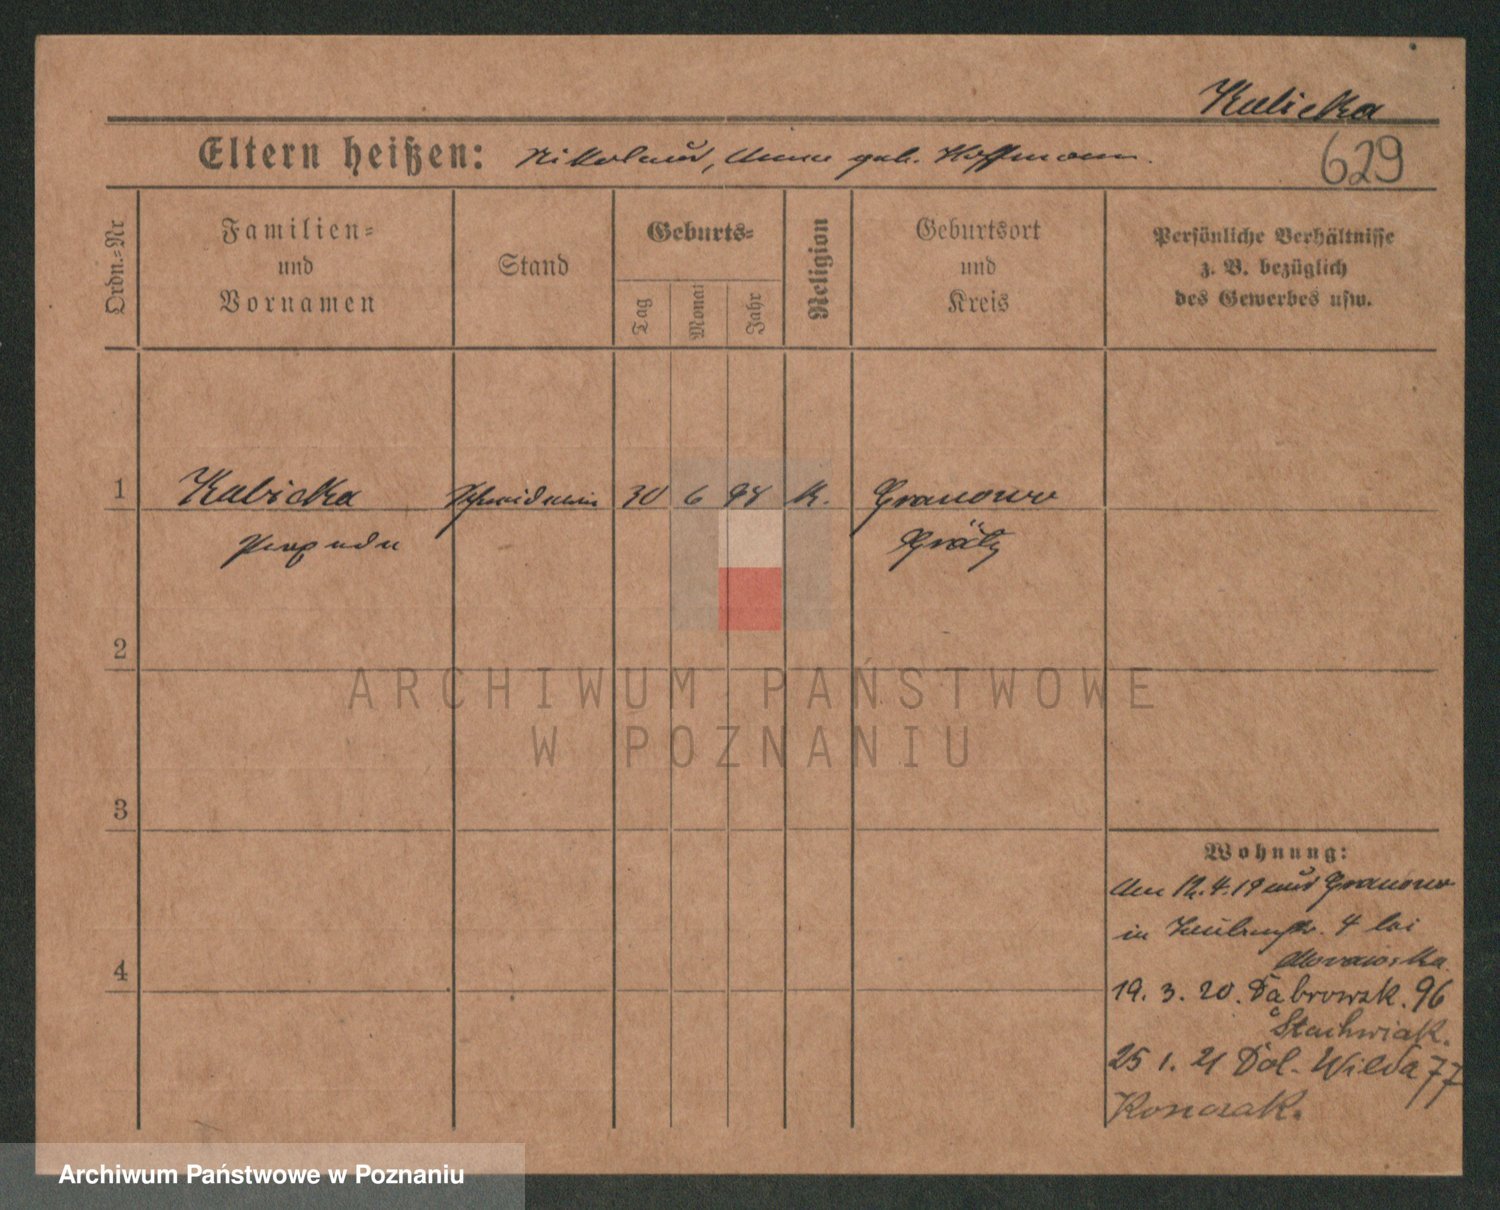 Kubicka
629
Eltern heißen: Nikolaus, Anna geb. Hoffmann.
Ordn.-Nr
Familien-
und
Vornamen
Stand
Geburts-
Tag
Monat
Jahr
Religion
Geburtsort
und
Kreis
Persönliche Verhältnisse
z. B. bezüglich
des Gewerbes usw.
1 Kubicka Schneiderin 30 6 94 K. Granowo
Grätz
2
3
4
Wohnung:
Am 12.4.19 aus Granowo
in 4 bei
Morawska
19. 3. 20. Dąbrowsk. 96
Stachwiak.
25 1. 21 Dol. Wilda 77
Konczak.
ARCHIWUM PAŃSTWOWE
W POZNANIU
Archiwum Państwowe w Poznaniu